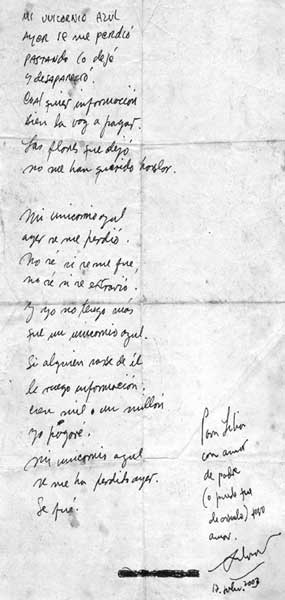 MI UNICORNIO AZUL
AYER SE ME PERDIÓ
PASTANDO lo dejé
y desapareció.
Cualquier información
bien la voy a pagar.
Las flores que dejó
no me han querido hablar.
Mi unicornio azul
ayer se me perdió.
No sé si se me fue,
no sé si se extravió.
Y yo no tengo más
que un unicornio azul.
Si alguien sabe de él
le ruego información.
cien mil o un millón
yo pagaré.
mi unicornio azul
se me ha perdido ayer.
Se fué.
Para
con amor
de padre
(o puede que
de) 
amor.
17. 2003